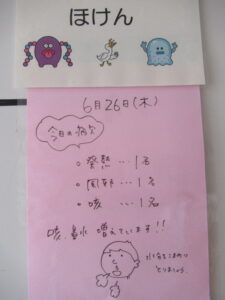 ほけん
6月26日(木)
今日の病欠
・発熱…1名
・風邪…1名
・咳…1名
咳、鼻水 増えています!!
水分をこまめに
とりましょう。